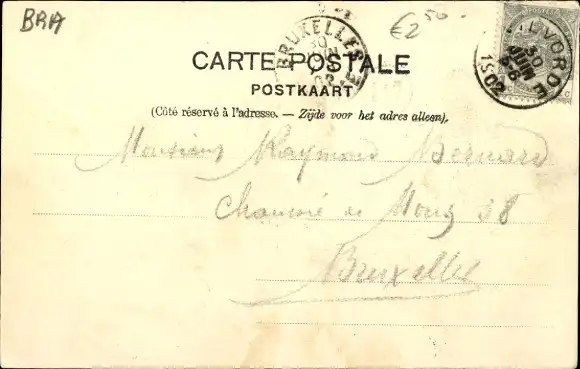 BRA
€2 50
BRUXELLES 30 JUIN 02
VILVORDE 30 JUIN 6-8 1902
CARTE POSTALE
POSTKAART
(Côté réservé à l'adresse. — Zijde voor het adres alleen).
Monsieur Raymond Bernard
Chaussée de Mons 38
Bruxelles